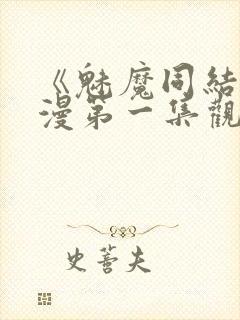 《魅魔同結
漫第一集觀
史蒼夫